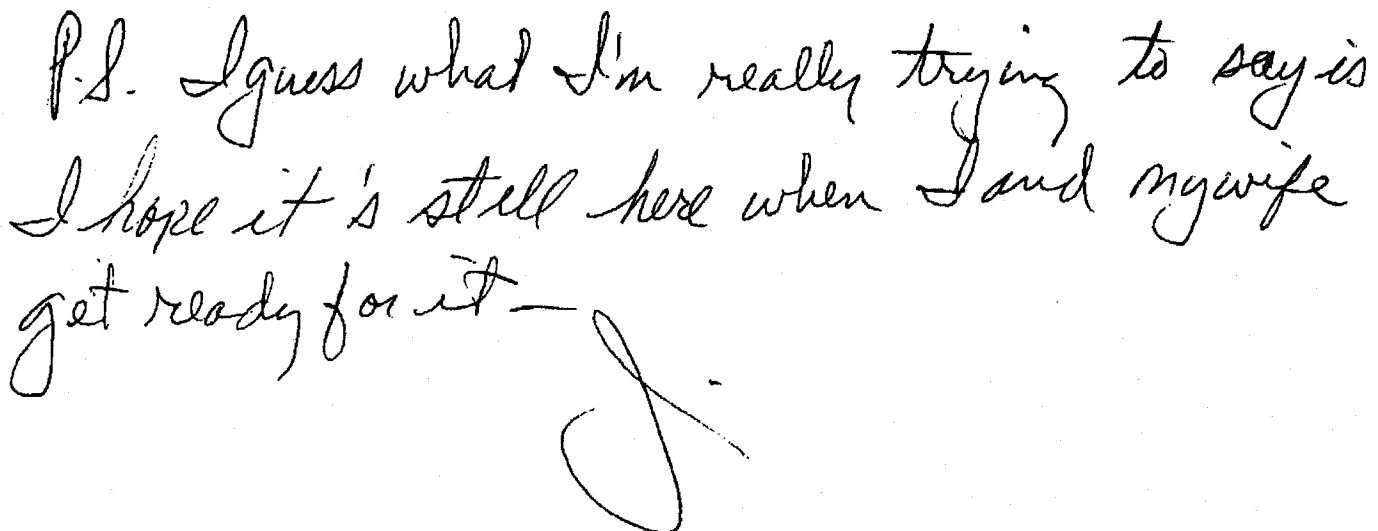 P.S. I guess what I'm really trying to say is
I hope it's still here when I and my wife
get ready for it —